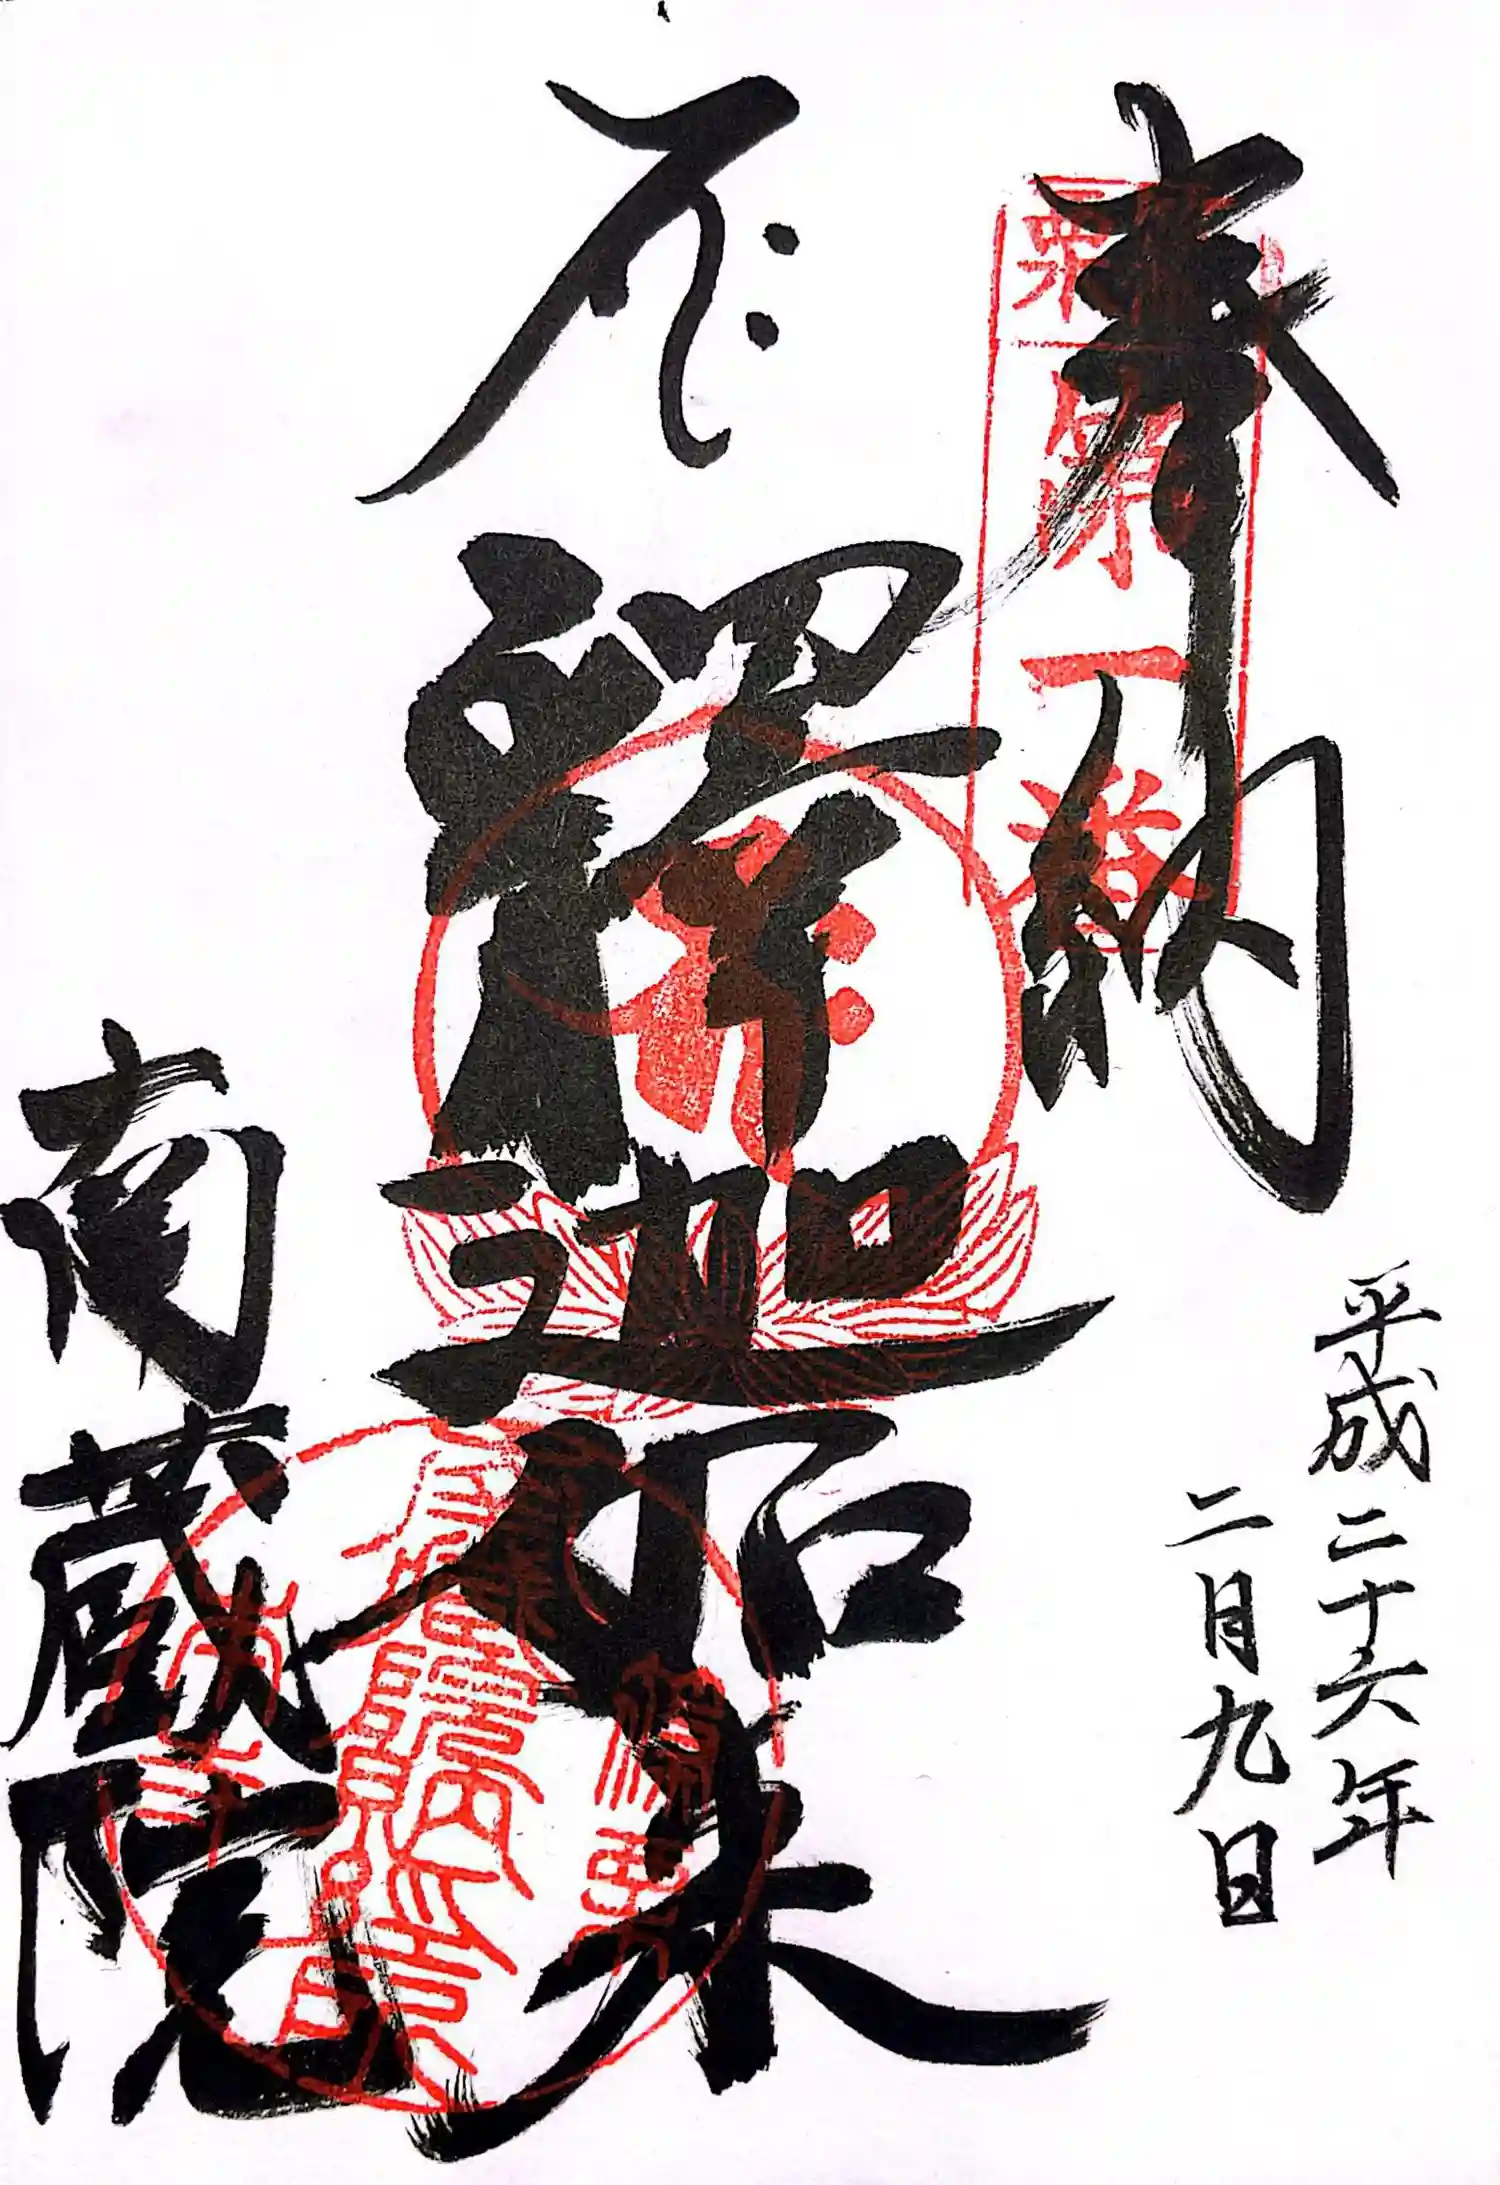 奉納
篠栗
第一番
平成二十六年
二月九日
𑖥𑖾
釋迦如来
南蔵院